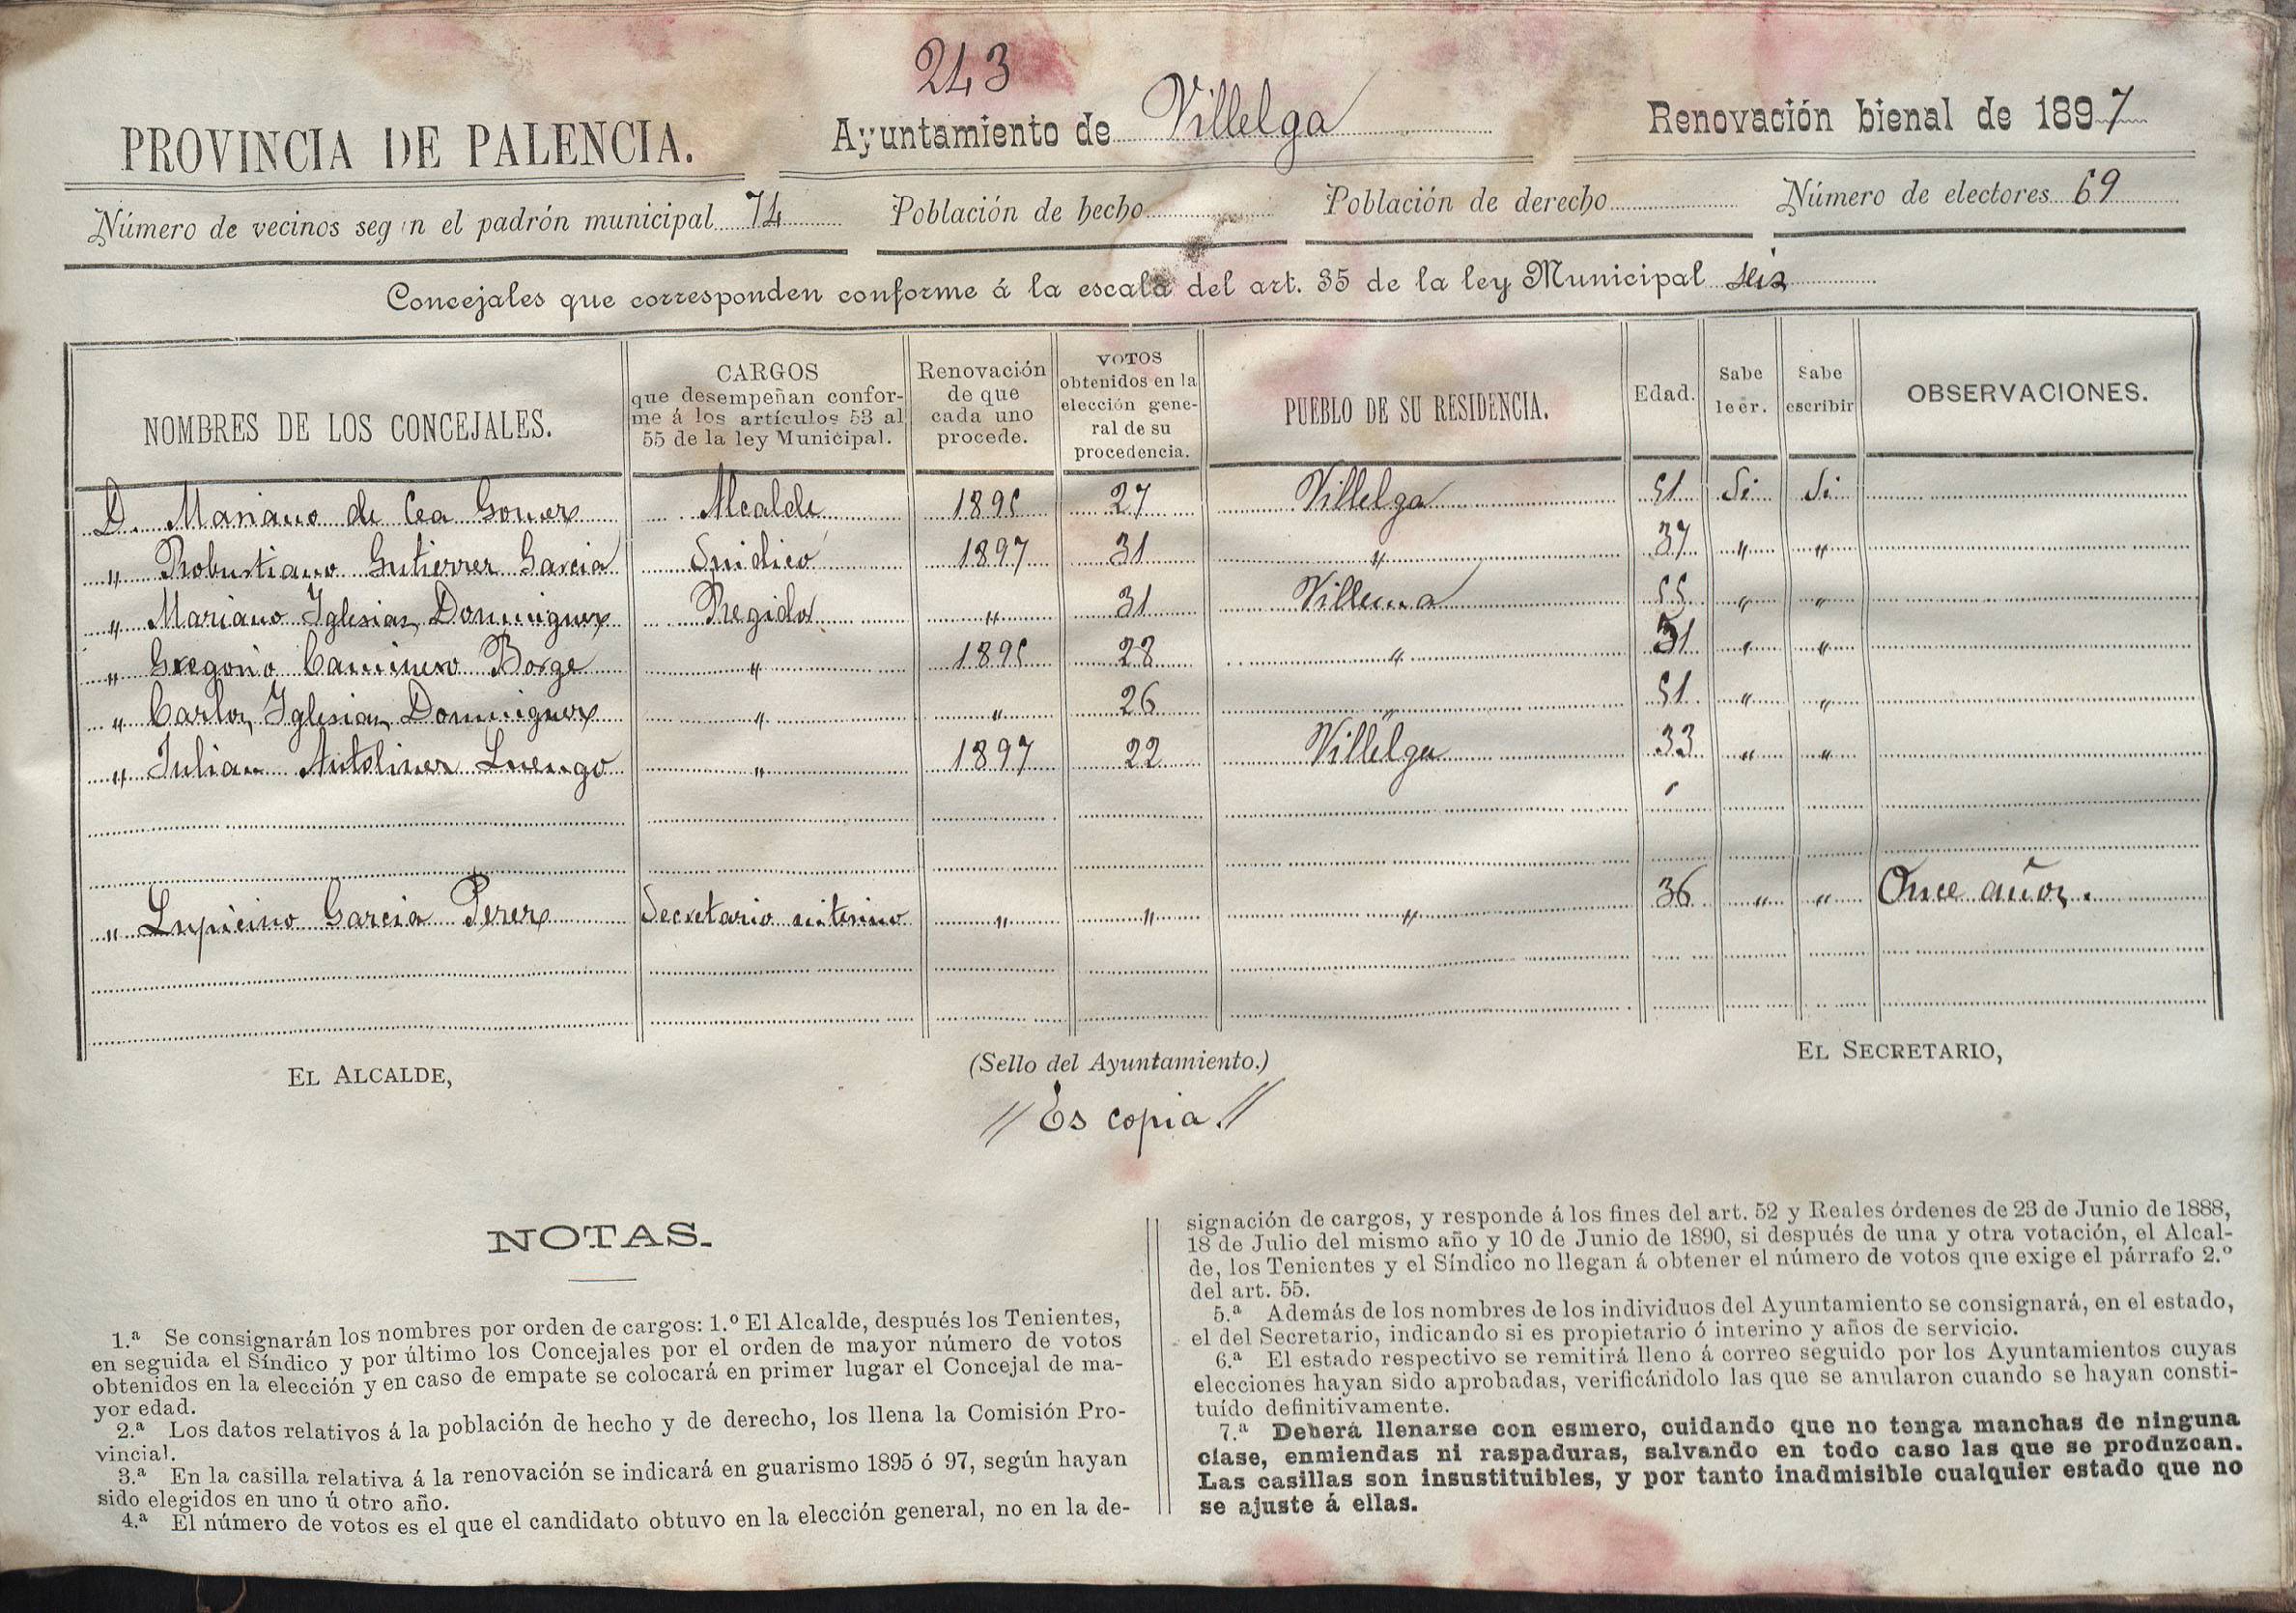 243
PROVINCIA DE PALENCIA. Ayuntamiento de Villelga Renovación bienal de 1897
Número de vecinos según el padrón municipal 74 Población de hecho Población de derecho Número de electores 69
Concejales que corresponden conforme á la escala del art. 35 de la ley Municipal seis
NOMBRES DE LOS CONCEJALES. CARGOS que desempeñan conforme á los artículos 53 al 55 de la ley Municipal. Renovación de que cada uno procede. VOTOS obtenidos en la elección general de su procedencia. PUEBLO DE SU RESIDENCIA. Edad. Sabe leer. Sabe escribir OBSERVACIONES.
D. Mariano de Cea Gomez Alcalde 1895 27 Villelga 51 Si Si
" Robustiano Gutierrez Garcia Sindico 1897 31 " 37 " "
" Mariano Iglesias Dominguez Regidor " 31 55 " "
" Gregorio Caminero Borge " 1895 28 " 31 " "
" Carlos Iglesias Dominguez " " 26 " 51 " "
" Julian Antolinez Luengo " 1897 22 Villelga 33 " "
" Lupicino Garcia Perez Secretario interino " " " 36 " " Once años.
EL ALCALDE, (Sello del Ayuntamiento.) EL SECRETARIO,
// Es copia. //
NOTAS.
1.ª Se consignarán los nombres por orden de cargos: 1.º El Alcalde, después los Tenientes,
en seguida el Síndico y por último los Concejales por el orden de mayor número de votos
obtenidos en la elección y en caso de empate se colocará en primer lugar el Concejal de ma-
yor edad.
2.ª Los datos relativos á la población de hecho y de derecho, los llena la Comisión Pro-
vincial.
3.ª En la casilla relativa á la renovación se indicará en guarismo 1895 ó 97, según hayan
sido elegidos en uno ú otro año.
4.ª El número de votos es el que el candidato obtuvo en la elección general, no en la de-
signación de cargos, y responde á los fines del art. 52 y Reales órdenes de 23 de Junio de 1888,
18 de Julio del mismo año y 10 de Junio de 1890, si después de una y otra votación, el Alcal-
de, los Tenientes y el Síndico no llegan á obtener el número de votos que exige el párrafo 2.º
del art. 55.
5.ª Además de los nombres de los individuos del Ayuntamiento se consignará, en el estado,
el del Secretario, indicando si es propietario ó interino y años de servicio.
6.ª El estado respectivo se remitirá lleno á correo seguido por los Ayuntamientos cuyas
elecciones hayan sido aprobadas, verificándolo las que se anularon cuando se hayan consti-
tuído definitivamente.
7.ª Deberá llenarse con esmero, cuidando que no tenga manchas de ninguna
clase, enmiendas ni raspaduras, salvando en todo caso las que se produzcan.
Las casillas son insustituibles, y por tanto inadmisible cualquier estado que no
se ajuste á ellas.